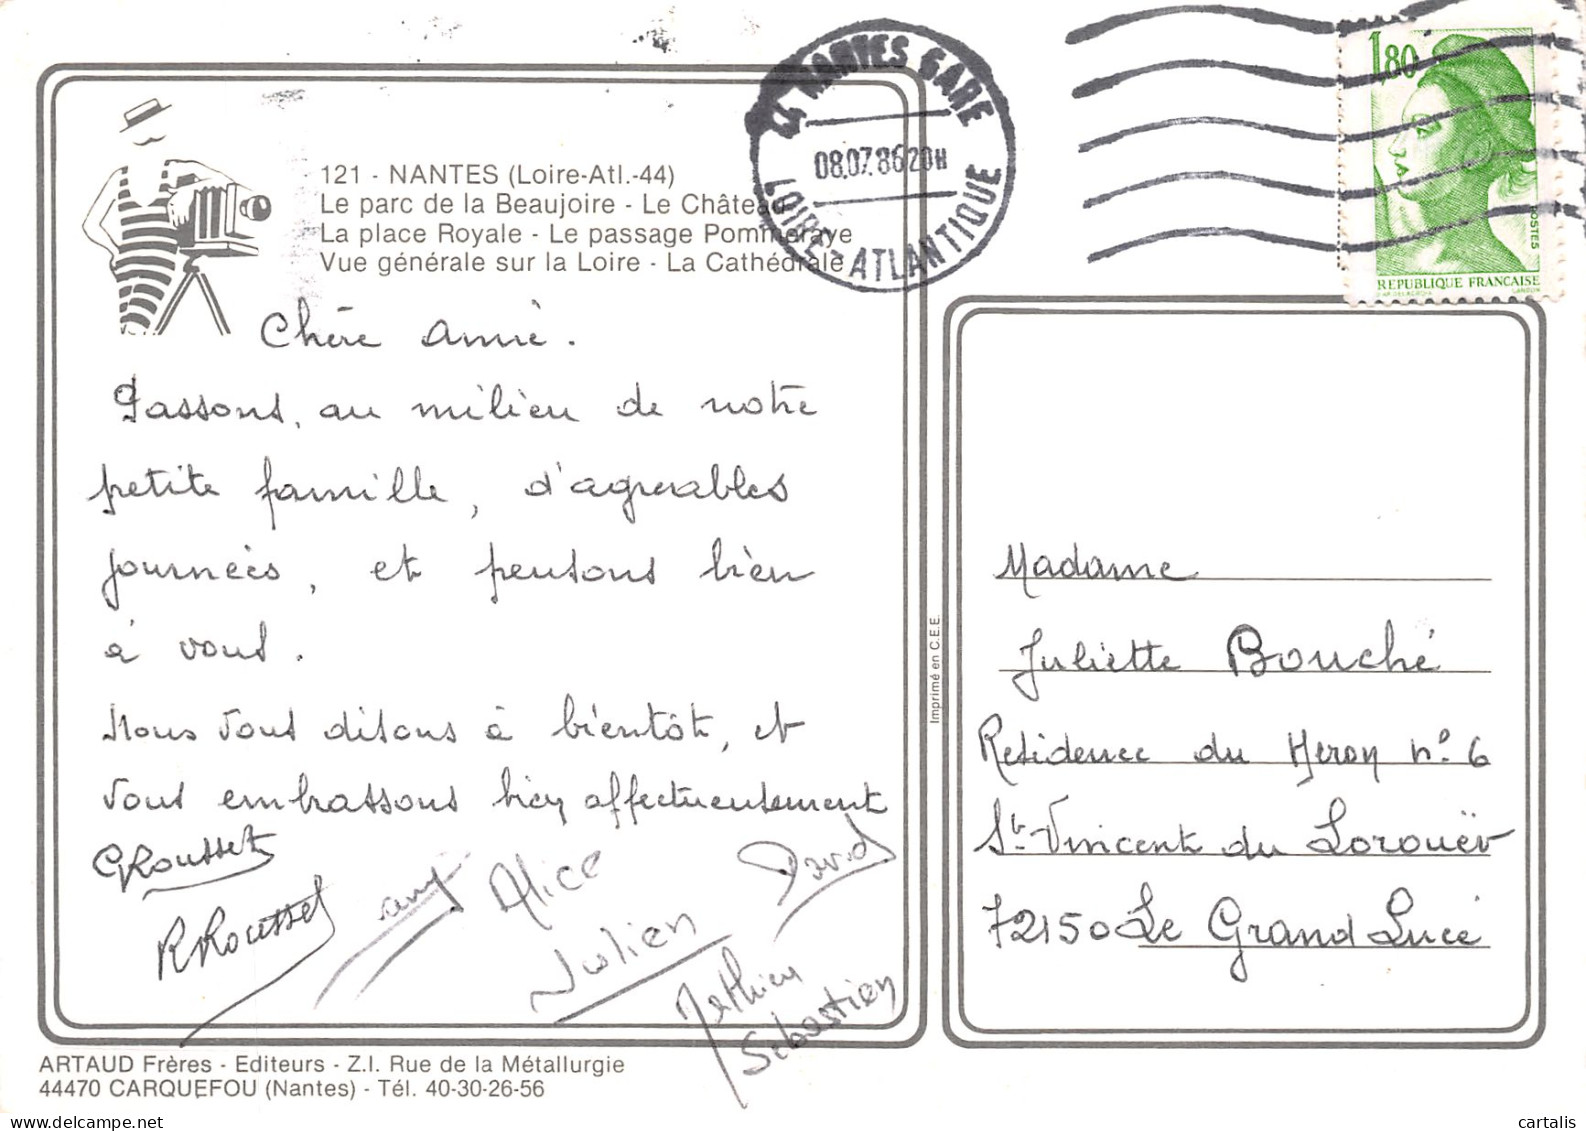 44 NANTES GARE
08.07.86 20H
LOIRE-ATLANTIQUE
1,80
POSTES
REPUBLIQUE FRANCAISE
121 - NANTES (Loire-Atl.-44)
Le parc de la Beaujoire - Le Château
La place Royale - Le passage Pommeraye
Vue générale sur la Loire - La Cathédrale
Chère amie.
Passons, au milieu de notre
petite famille, d'agreables
journées, et pensons bien
à vous.
Nous vous disons à bientôt, et
vous embrassons bien affectueusement
GRousset
RRousset
Alice
David
Julien
Mathieu
Sébastien
Imprimé en C.E.E.
Madame
Juliette Bouché
Residence du Heron n° 6
St-Vincent du Lorouër
72150 Le Grand Lucé
ARTAUD Frères - Editeurs - Z.I. Rue de la Métallurgie
44470 CARQUEFOU (Nantes) - Tél. 40-30-26-56
cartalis